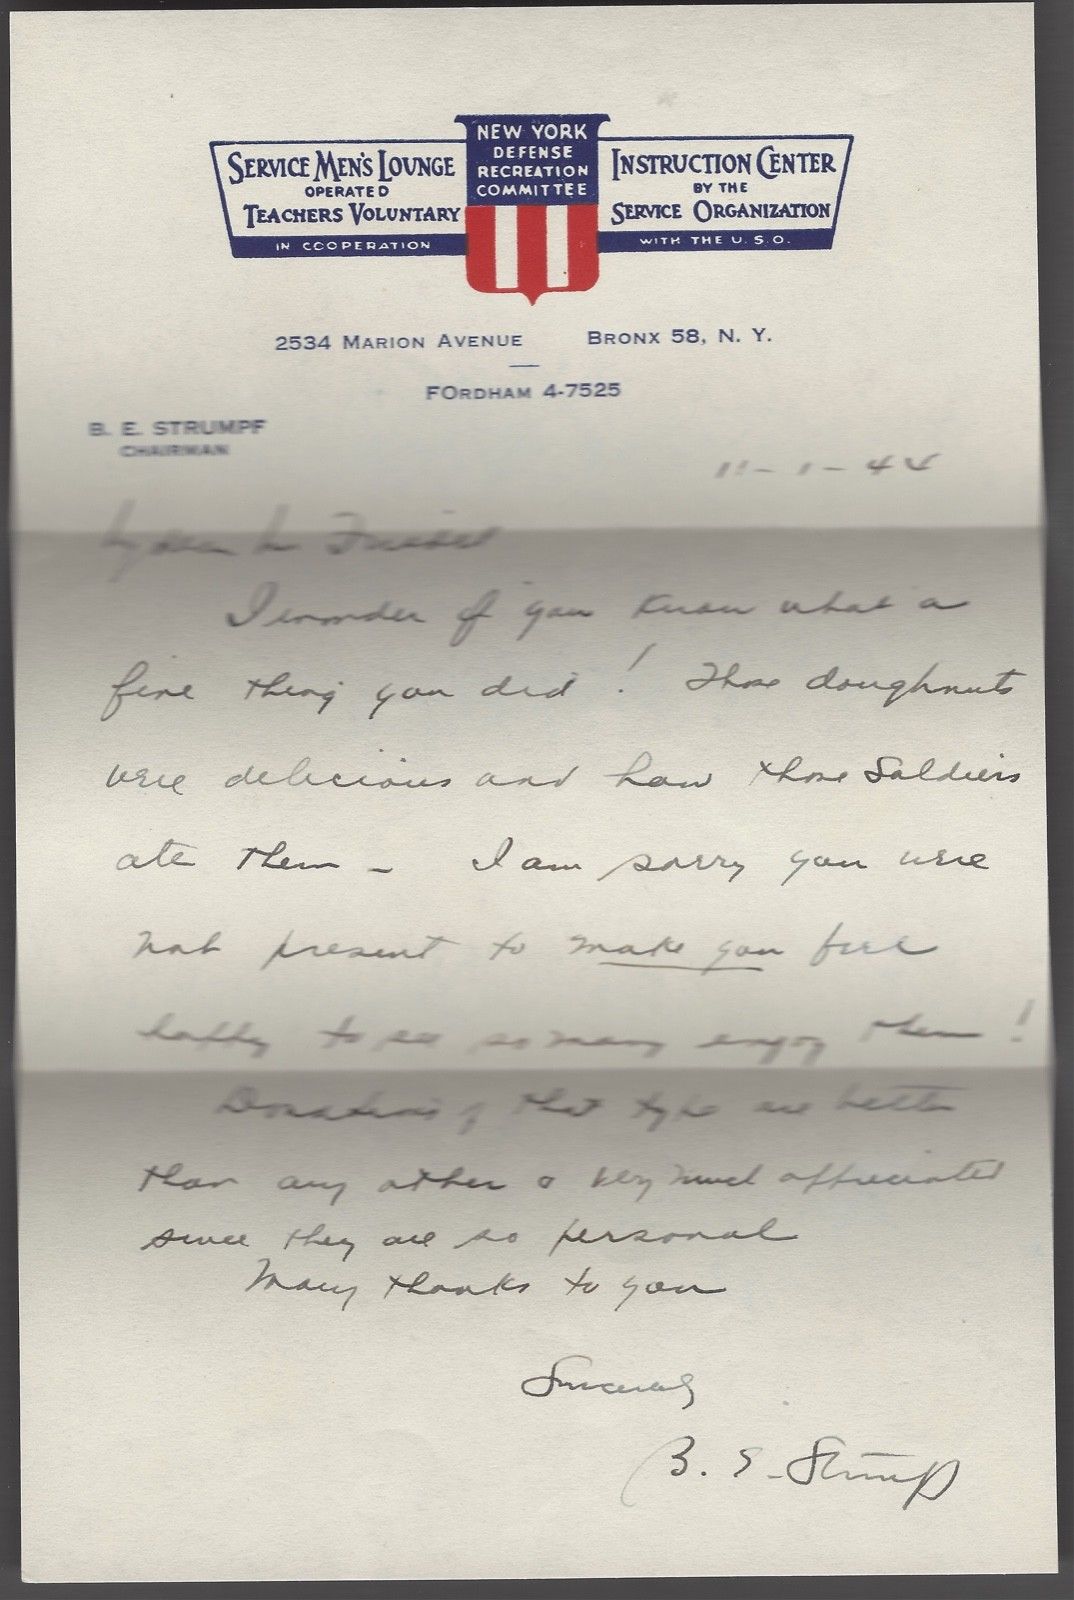 NEW YORK
DEFENSE
RECREATION
COMMITTEE
SERVICE MEN'S LOUNGE
INSTRUCTION CENTER
OPERATED
BY THE
TEACHERS VOLUNTARY
SERVICE ORGANIZATION
IN COOPERATION
WITH THE U.S.O.
2534 MARION AVENUE BRONX 58, N. Y.
FORDHAM 4-7525
B. E. STRUMPF
CHAIRMAN
11-1-44
My dear
I wonder if you know what a
fine thing you did! Those doughnuts
were delicious and how those Soldiers
ate them - I am sorry you were
not present to make you feel
happy to see so many enjoy them!
Donations of that type are better
than any other & very much appreciated
since they are so personal
Many thanks to you
Sincerely
B. E. Strumpf